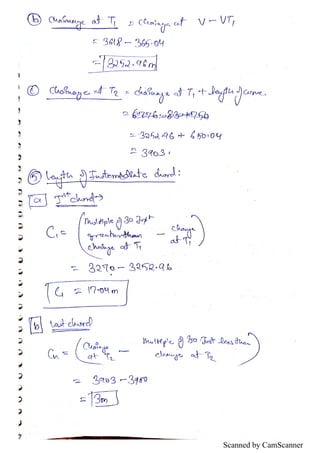 (b) Chainage at T₁ = Chainage at V - VT₁
= 3618 - 365.04
= 3252.96m
(c) Chainage at T₂ = chainage at T₁ + length of curve.
= 3252.96 + 650.04
= 3903.
(5) Length of Intermediate chord:
[a] Ist chord→
C₁ = (multiple of 30 Just greater than chainage at T₁ - chainage at T₁)
= 3270 - 3252.96
C₁ = 17.04m
[b] Last chord
Cn = (Chainage at T₂ - Multiple of 30 Just less than chainage at T₂)
= 3903 - 3900
= 3m
Scanned by CamScanner